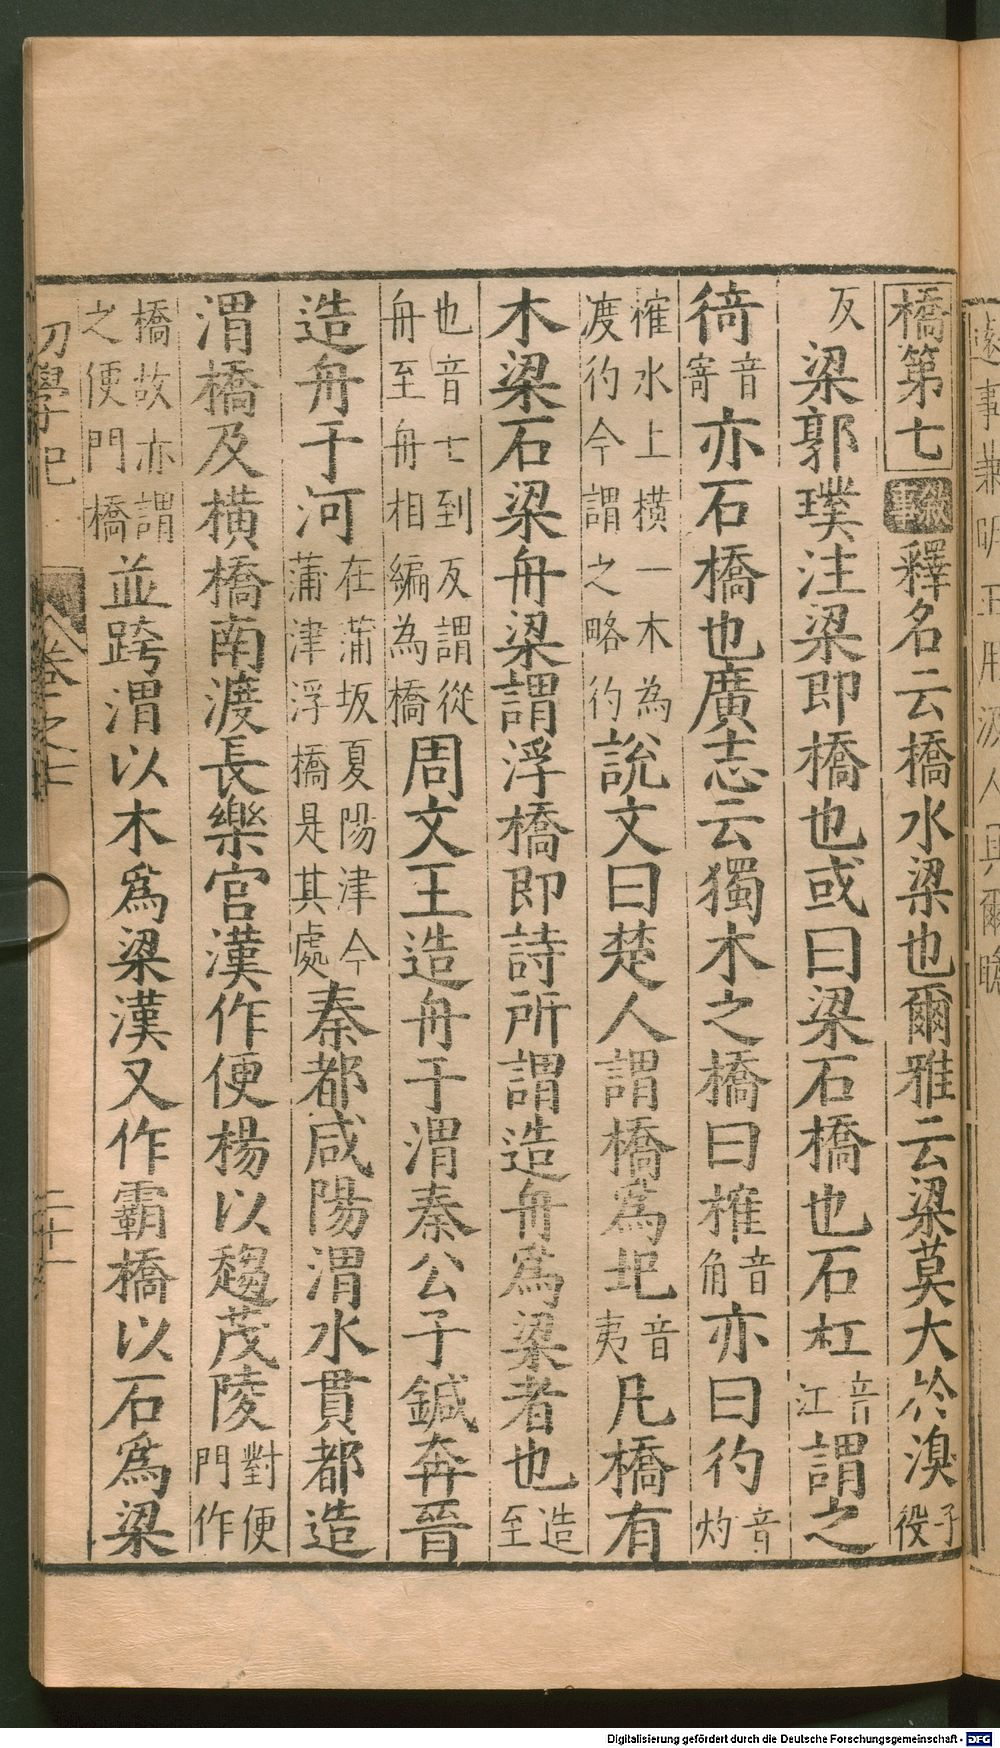 橋第七敘事釋名云橋水梁也爾雅云梁莫大於湨子役
反梁郭璞注梁即橋也或曰梁石橋也石杠音江謂之
徛音寄亦石橋也廣志云獨木之橋曰榷音角亦曰彴音灼
榷水上橫一木為渡彴今謂之略彴說文曰楚人謂橋爲圯音夷凡橋有
木梁石梁舟梁謂浮橋即詩所謂造舟爲梁者也造至
也音七到反謂從舟至舟相編為橋周文王造舟于渭秦公子鍼奔晉
造舟于河在蒲坂夏陽津今蒲津浮橋是其處秦都咸陽渭水貫都造
渭橋及橫橋南渡長樂宮漢作便橋以趨茂陵對便門作
橋故亦謂之便門橋並跨渭以木爲梁漢又作霸橋以石爲梁
初學記
卷之七
二十一
Digitalisierung gefördert durch die Deutsche Forschungsgemeinschaft - DFG